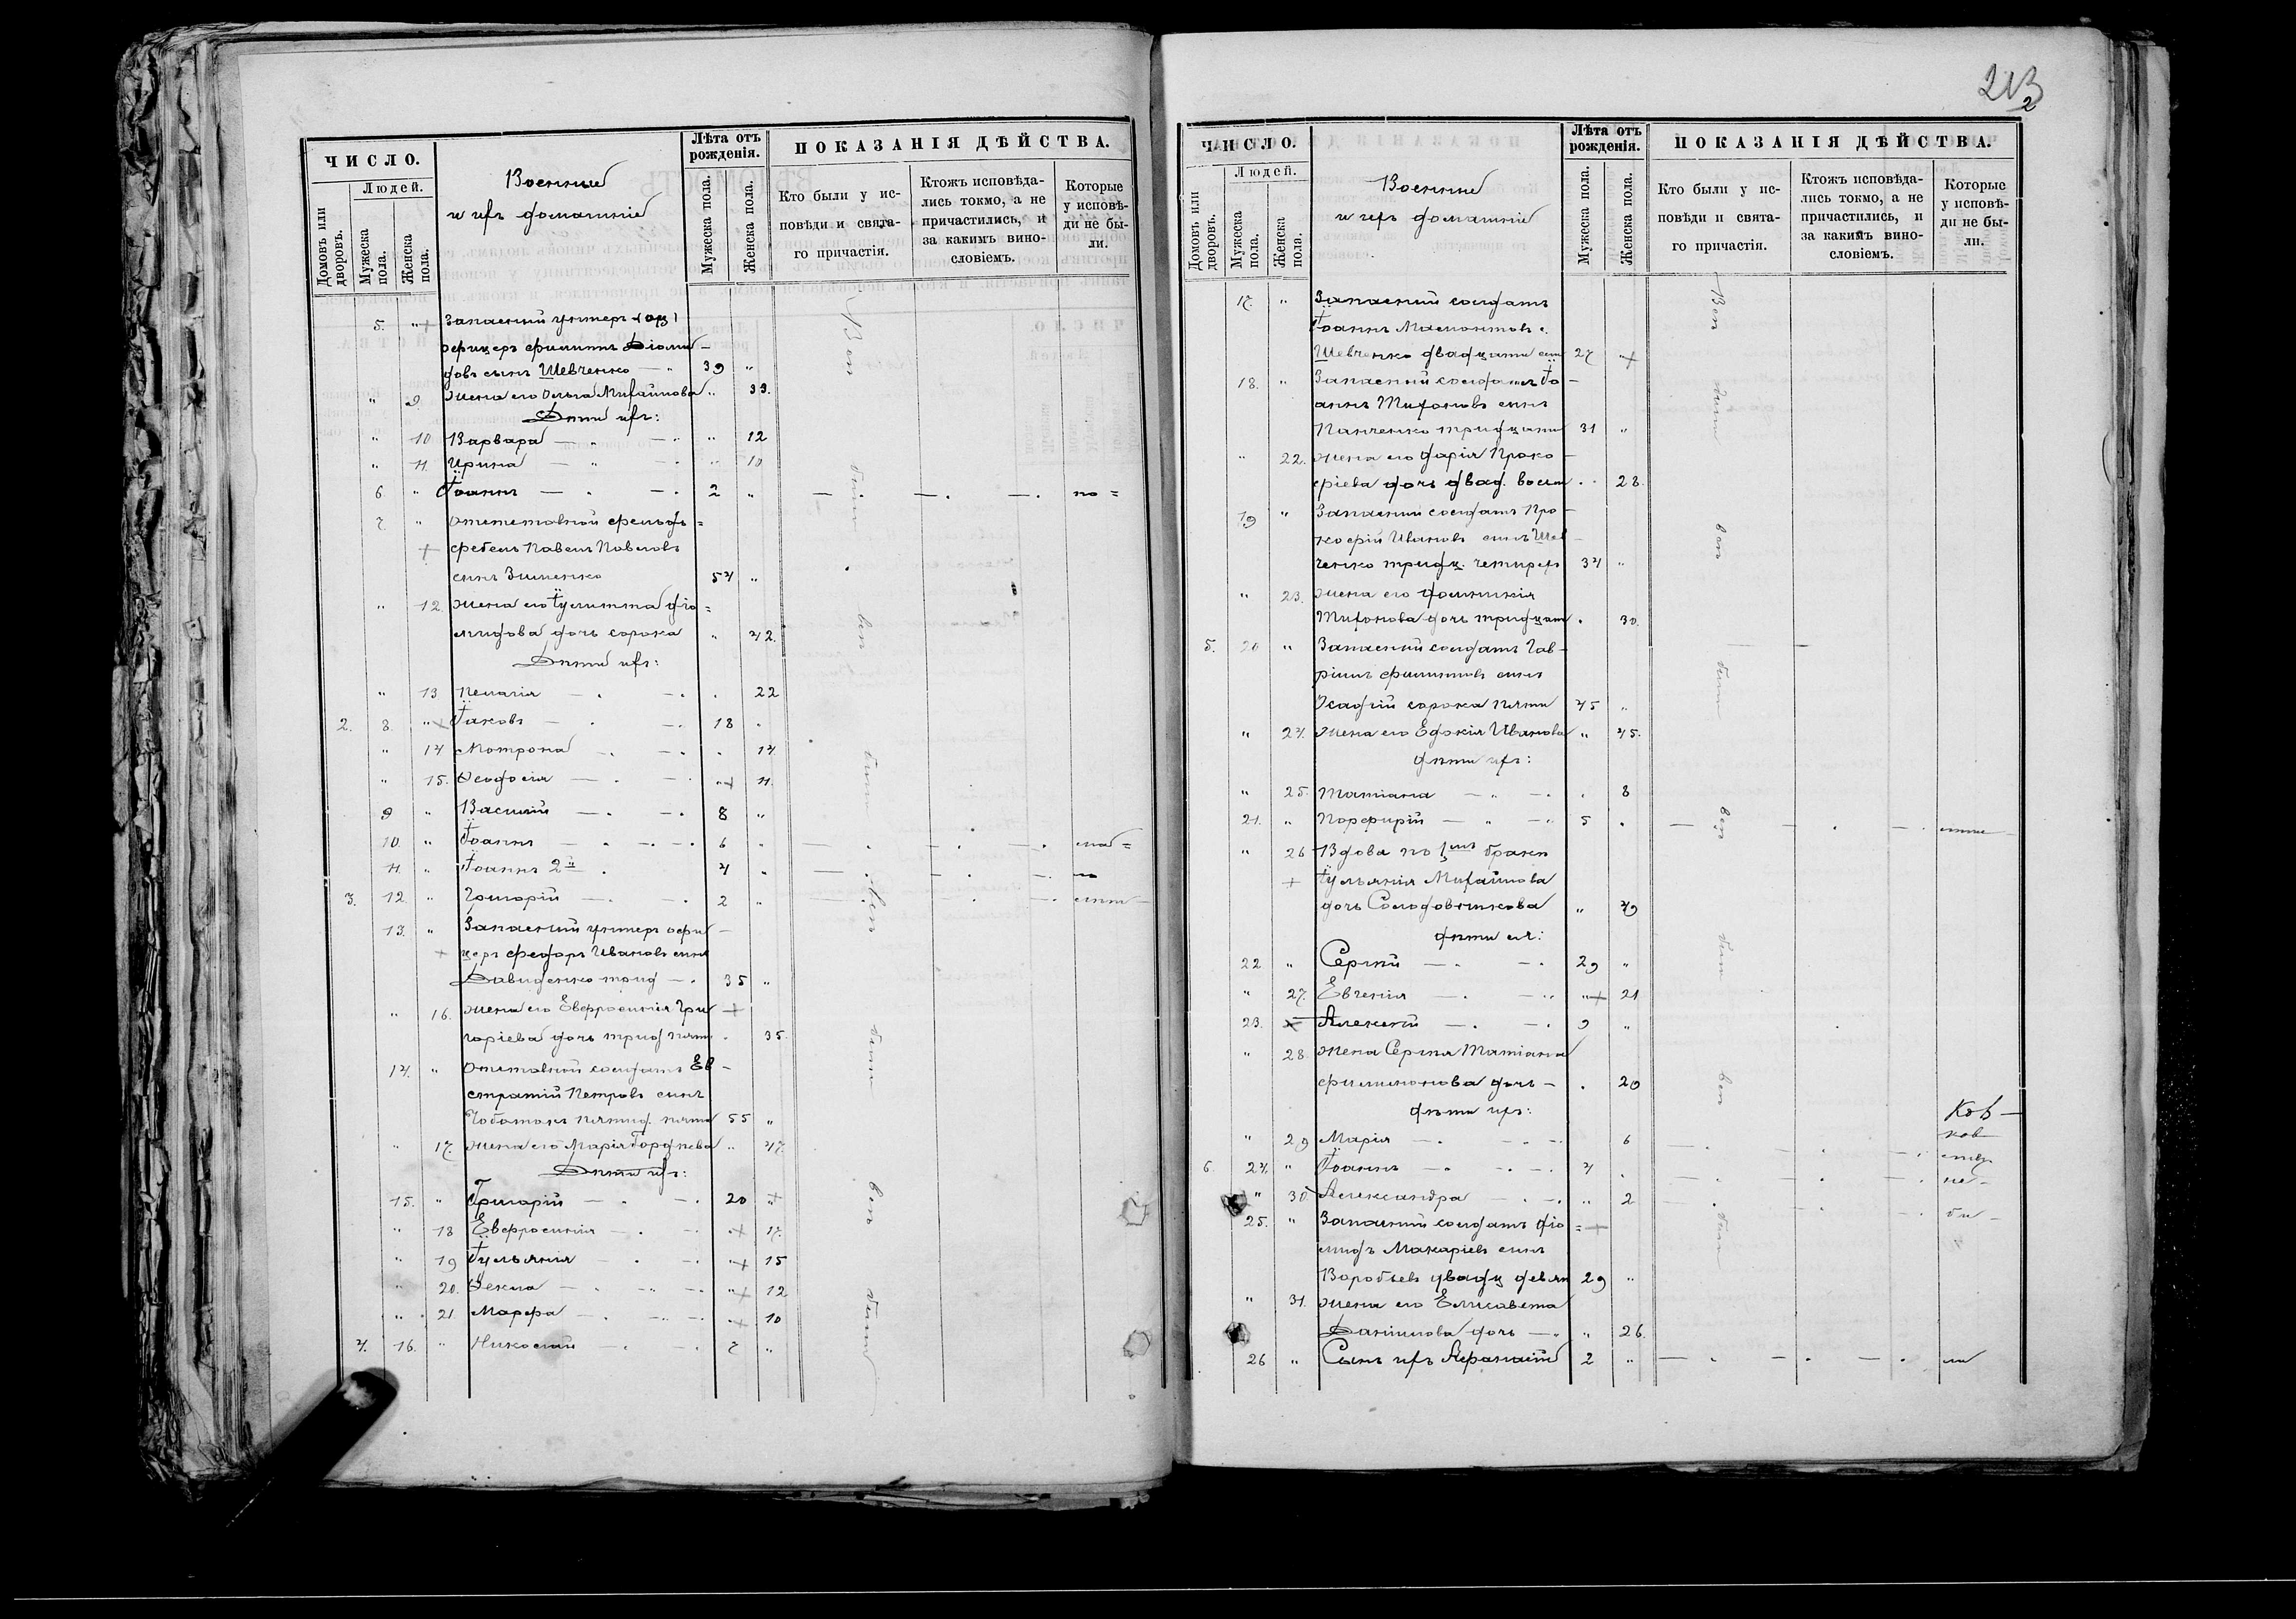 ЧИСЛО.
Людей.
Домовъ или дворовъ.
Мужеска пола.
Женска пола.
Военные
и ихъ домашніе
Лѣта отъ рожденія.
Мужеска пола.
Женска пола.
ПОКАЗАНІЯ ДѢЙСТВА.
Кто были у исповѣди и святаго причастія.
Ктожъ исповѣдались токмо, а не причастились, и за какимъ винословіемъ.
Которые у исповѣди не были.
5. " Запасный унтеръ
офицеръ Филиппъ Діоми-
довъ сынъ Шевченко 39 "
" 9 жена его Ольга Михайлова " 33.
Дѣти ихъ:
" 10 Варвара " 12
" 11. Ирина " 10
6 " Іоаннъ 2 "
7. " Отставной фельд=
фебель Павелъ Павловъ
сынъ Зименко 54 "
" 12 жена его Іулитта Діо=
мидова дочь сорока " 42.
Дѣти ихъ:
" 13 Пелагія . 22
2. 8. " Іаковъ 18 .
" 14 Мотрона . 14.
" 15. Ѳеодосія " 11.
9 " Василій 8 "
10. " Іоаннъ 6 "
11. " Іоаннъ 2й 4 "
3. 12. " Григорій 2 "
13. " Запасный унтеръ офи-
церъ Федоръ Ивановъ сынъ
Давиденко трид 35 "
" 16. жена его Евфросинія Гри
горіева дочь трид пяти . 35.
14. " Отставной солдатъ Ев-
стратій Петровъ сынъ
Чоботокъ пятид. пяти 55 "
" 17. жена его Марія Гордѣева " 47.
Дѣти ихъ:
15. " Григорій 20 "
" 18 Евфросинія . 17.
" 19 Іульянія " 15
" 20. Ѳекла " 12
" 21. Марфа . 10
4. 16. " Николай 7 "
Вси были вси были вси были вси были
213
2
ЧИСЛО.
Людей.
Домовъ или дворовъ.
Мужеска пола.
Женска пола.
Военные
и ихъ домашніе
Лѣта отъ рожденія.
Мужеска пола.
Женска пола.
ПОКАЗАНІЯ ДѢЙСТВА.
Кто были у исповѣди и святаго причастія.
Ктожъ исповѣдались токмо, а не причастились, и за какимъ винословіемъ.
Которые у исповѣди не были.
17. " Запасный солдатъ
Іоаннъ Мамонтовъ с.
Шевченко двадцати сем 27 "
18. " Запасный солдатъ Іо-
аннъ Тихоновъ сынъ
Панченко тридцати 31 "
" 22. жена его Дарія Проко-
фіева дочь двад. восьм . 28.
19 " Запасный солдатъ Про-
кофій Ивановъ сынъ Шев-
ченко тридц. четырехъ 34 "
" 23. жена его Домникія
Тихонова дочь тридцати . 30.
5. 20 " Запасный солдатъ Гав-
ріилъ Филипповъ сынъ
Осадчій сорока пяти 45 "
" 24. жена его Евдокія Иванова " 45.
дѣти ихъ:
" 25. Татіана . 8
21. " Порфирій 5 .
" 26 Вдова по 1мъ бракѣ
Іульянія Михайлова
дочь Солодовникова " 49
дѣти ея:
22 " Сергій 29 "
" 27. Евгенія " 21
23. Алексѣй 9 "
" 28 жена Сергія Татіана
Филимонова дочь . 20
дѣти ихъ:
" 29 Марія 6
6. 24. " Іоаннъ 4 .
" 30. Александра " 2
25. " Запасный солдатъ Діо=
мидъ Макаріевъ сынъ
Воробьевъ двадц девяти 29 "
" 31. жена его Елисавета
Даніилова дочь " 26.
26 " Сынъ ихъ Афанасій 2 "
Вси были вси были вси были вси были